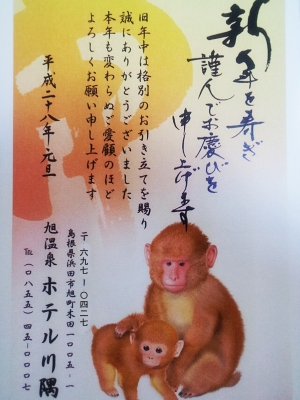 新年を寿ぎ
謹んでお慶びを
申し上げます
旧年中は格別のお引き立てを賜り
誠にありがとうございました
本年も変わらぬご愛顧のほど
よろしくお願い申し上げます
平成二十八年元旦
〒六九七-〇四二七
島根県浜田市旭町木田一〇〇五-一
旭温泉 ホテル川隅
℡(〇八五五)四五-〇〇〇七